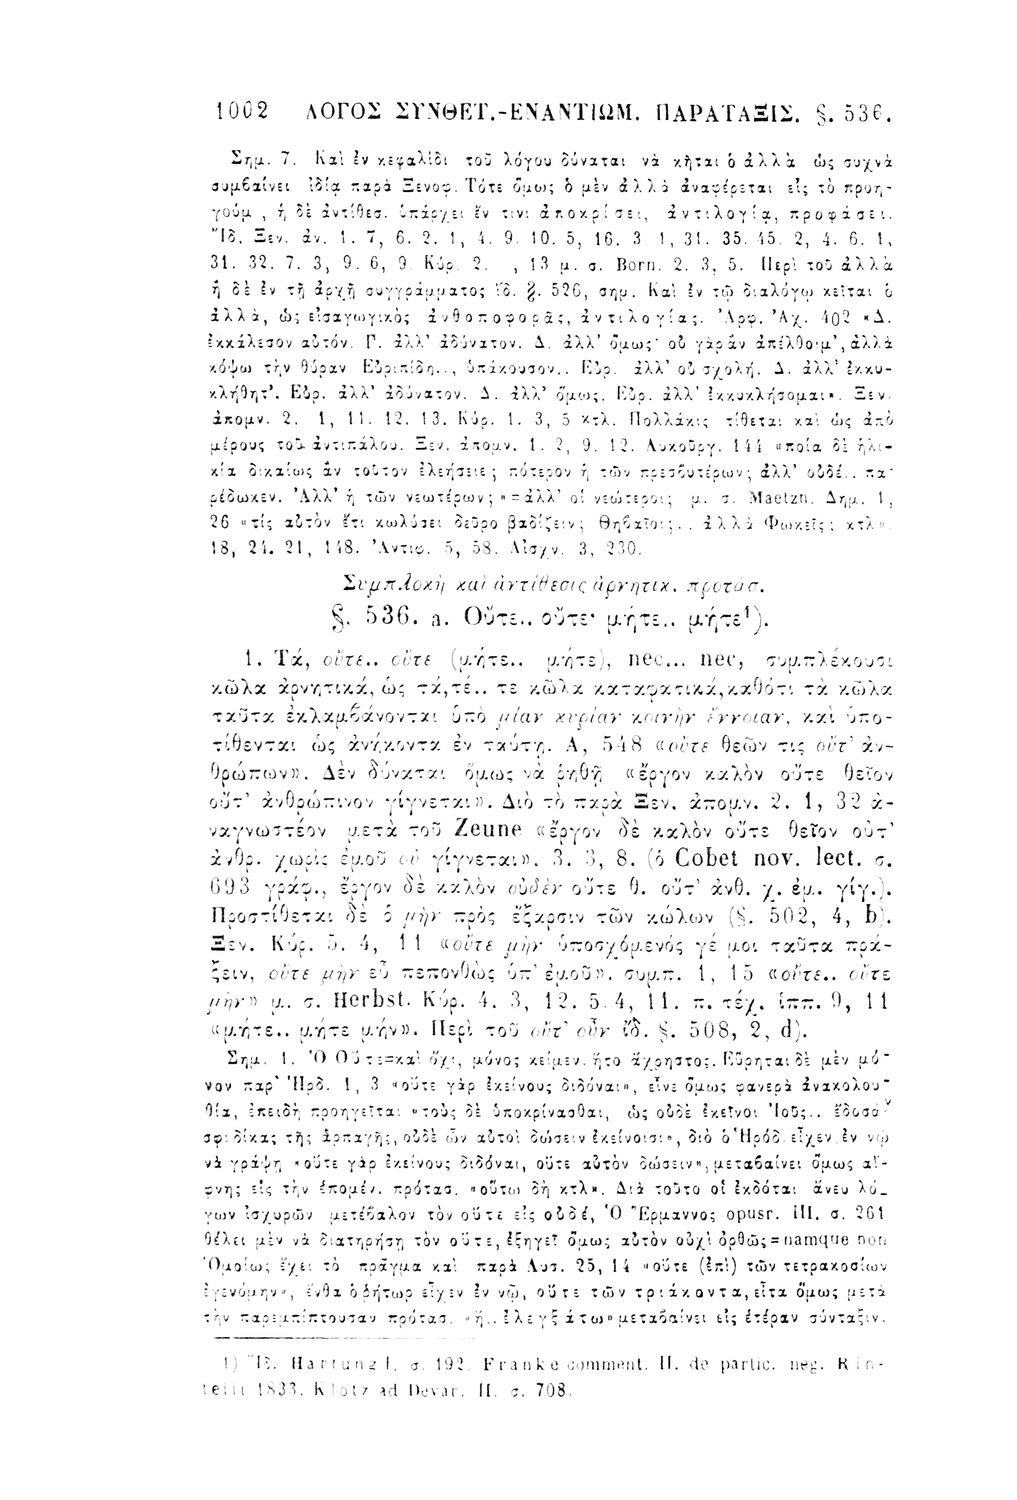 1002 ΛΟΓΟΣ ΣΥΝΘΕΤ.-ΕΝΑΝΤΙΩΜ. ΠΑΡΑΤΑΞΙΣ. §. 536.
Σημ. 7. Καὶ ἐν κεφαλίδι τοῦ λόγου δύναται νὰ κῆται ὁ ἀλλὰ ὡς συχνὰ
συμβαίνει ἰδίᾳ παρὰ Ξενοφ. Τότε ὅμως ὁ μὲν ἀλλὰ ἀναφέρεται εἰς τὸ προη-
γούμ , ἡ δὲ ἀντίθεσ. ὑπάρχει ἔν τινι ἀποκρίσει, ἀντιλογίᾳ, προφάσει.
Ἴδ. Ξεν. ἀν. 1. 7, 6. 2. 1, 4. 9. 10. 5, 16. 3 1, 31. 35. 45. 2, 4. 6. 1,
31. 32. 7. 3, 9. 6, 9 Κύρ. 2. , 13 μ. σ. Born. 2. 3, 5. Περὶ τοῦ ἀλλὰ
ἢ δὲ ἐν τῇ ἀρχῇ συγγράμματος ἴδ. §. 526, σημ. Καὶ ἐν τῷ διαλόγῳ κεῖται ὁ
ἀλλὰ, ὡς εἰσαγωγικὸς ἀνθοποφορᾶς, ἀντιλογίας. Ἀρφ. Ἀχ. 402 «Δ.
ἐκκάλεσον αὐτόν. Γ. ἀλλ' ἀδύνατον. Δ. ἀλλ' ὅμως· οὐ γὰρ ἂν ἀπέλθοιμ', ἀλλὰ
κόψω τὴν θύραν. Εὐριπίδη.., ὑπάκουσον.. Εὐρ. ἀλλ' οὐ σχολή. Δ. ἀλλ' ἐκκυ-
κλήθητ'. Εὐρ. ἀλλ' ἀδύνατον. Δ. ἀλλ' ὅμως. Εὐρ. ἀλλ' ἐκκυκλήσομαι». Ξεν.
ἀπομν. 2. 1, 11. 12. 13. Κύρ. 1. 3, 5 κτλ. Πολλάκις τίθεται καὶ ὡς ἀπὸ
μέρους τοῦ ἀντιπάλου. Ξεν. ἀπομν. 1. 2, 9. 12. Λυκοῦργ. 144 «ποία δὲ ἡλι-
κία δικαίως ἂν τοῦτον ἐλεήσειε; πότερον ἡ τῶν πρεσβυτέρων; ἀλλ' οὐδὲ.. πα-
ρέδωκεν. Ἀλλ' ἡ τῶν νεωτέρων;» = ἀλλ' οἱ νεώτεροι; μ. σ. Maetzn. Δημ. 1,
26 «τίς αὐτὸν ἔτι κωλύσει δεῦρο βαδίζειν; Θηβαῖοι;.. ἀλλὰ Φωκεῖς; κτλ».
18, 24. 21, 148. Ἀντιφ. 5, 58. Αἰσχν. 3, 230.
Συμπλοκὴ καὶ ἀντίθεσις ἀρνητικ. προτάσ.
§. 536. a. Οὔτε.. οὔτε· μήτε.. μήτε¹).
1. Τά, οὔτε.. οὔτε (μήτε.. μήτε), nec... nec, συμπλέκουσι
κῶλα ἀρνητικά, ὡς τά,τέ.. τε κῶλα καταφατικά,καθότι τὰ κῶλα
ταῦτα ἐκλαμβάνονται ὑπὸ μίαν κυρίαν κοινὴν ἔννοιαν, καὶ ὑπο-
τίθενται ὡς ἀνήκοντα ἐν ταύτῃ. Α, 548 «οὔτε θεῶν τις οὔτ' ἀν-
θρώπων». Δὲν δύναται ὅμως νὰ ῥηθῇ «ἔργον καλὸν οὔτε θεῖον
οὔτ' ἀνθρώπινον γίγνεται». Διὸ τὸ παρὰ Ξεν. ἀπομν. 2. 1, 32 ἀ-
ναγνωστέον μετὰ τοῦ Zeune «ἔργον δὲ καλὸν οὔτε θεῖον οὐτ'
ἀνθρ. χωρὶς ἐμοῦ οὐ γίγνεται». 3. 3, 8. (ὁ Cobet nov. lect. σ.
693 γράφ., ἔργον δὲ καλὸν οὐδὲν οὔτε θ. οὔτ' ἀνθ. χ. ἐμ. γίγ.).
Προστίθεται δὲ ὁ μὴν πρὸς ἔξαρσιν τῶν κώλων (§. 502, 4, b).
Ξεν. Κύρ. 5. 4, 11 «οὔτε μὴν ὑποσχόμενός γέ μοι ταῦτα πρά-
ξειν, οὔτε μὴν εὖ πεπονθὼς ὑπ' ἐμοῦ». συμπ. 1, 15 «οὔτε.. οὔτε
μὴν» μ. σ. Herbst. Κύρ. 4. 3, 12. 5 4, 11. π. τέχ. ἱππ. 9, 11
«μήτε.. μήτε μήν». Περὶ τοῦ οὔτ' οὖν ἴδ. §. 508, 2, d).
Σημ. 1. Ὁ Οὔτε=καὶ ὄχι, μόνος κείμεν. ἦτο ἄχρηστος. Εὕρηται δὲ μὲν μό-
νον παρ' Ἡρδ. 1, 3 «οὔτε γὰρ ἐκείνους διδόναι», εἶνε ὅμως φανερὰ ἀνακολου-
θία, ἐπειδὴ προηγεῖται «τοὺς δὲ ὑποκρίνασθαι, ὡς οὐδὲ ἐκεῖνοι Ἰοῦς.. ἔδοσάν
σφι δίκας τῆς ἁρπαγῆς, οὐδὲ ὦν αὐτοὶ δώσειν ἐκείνοισι», διὸ ὁ Ἡρόδ. εἶχεν ἐν νῷ
νὰ γράψῃ «οὔτε γὰρ ἐκείνους διδόναι, οὔτε αὐτὸν δώσειν», μεταβαίνει ὅμως αἴ-
φνης εἰς τὴν ἑπομέν. πρότασ. «οὕτω δὴ κτλ». Διὰ τοῦτο οἱ ἐκδόται ἄνευ λό-
γων ἰσχυρῶν μετέβαλον τὸν οὔτε εἰς οὐδέ, Ὁ Ἕρμαννος opusr. III. σ. 261
θέλει μὲν νὰ διατηρήσῃ τὸν οὔτε, ἐξηγεῖ ὅμως αὐτὸν οὐχὶ ὀρθῶς=namque non
Ὁμοίως ἔχει τὸ πρᾶγμα καὶ παρὰ Λυσ. 25, 14 «οὔτε (ἐπὶ) τῶν τετρακοσίων
ἐγενόμην», ἔνθα ὁ ῥήτωρ εἶχεν ἐν νῷ, οὔτε τῶν τριάκοντα, εἶτα ὅμως μετὰ
τὴν παρεμπίπτουσαν πρότασ. «ἢ.. ἐλεγξάτω» μεταβαίνει εἰς ἑτέραν σύνταξιν.
1) Ἴδ. Hartung I, σ. 192. Franke comment. II. de partic. neg. Rin-
telii 1833. Klotz ad Devar. II. σ. 708.